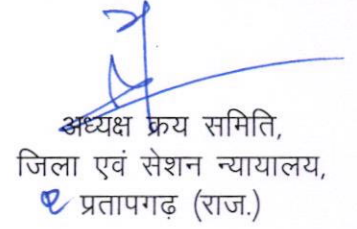 अध्यक्ष क्रय समिति,
जिला एवं सेशन न्यायालय,
प्रतापगढ़ (राज.)